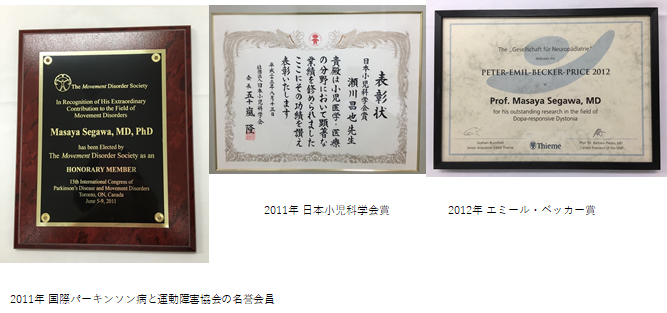 The Movement Disorder Society
In Recognition of His Extraordinary
Contribution to the Field of
Movement Disorders
Masaya Segawa, MD, PhD
has been Elected by
The Movement Disorder Society as an
HONORARY MEMBER
15th International Congress of
Parkinson's Disease and Movement Disorders
Toronto, ON, Canada
June 5-9, 2011
表彰状
日本小児科学会賞
瀬川昌也 先生
貴殿は小児医学・医療
の分野において顕著な
業績を修められました
ここにその功績を讃え
表彰いたします
平成二十三年八月十三日
社団法人日本小児科学会
会長 五十嵐 隆
The „Gesellschaft für Neuropädiatrie"
PETER-EMIL-BECKER-PRICE 2012
Prof. Masaya Segawa, MD
for his outstanding research in the field of
Dopa-responsive Dystonia
Thieme
2011年 日本小児科学会賞
2012年 エミール・ベッカー賞
2011年 国際パーキンソン病と運動障害協会の名誉会員